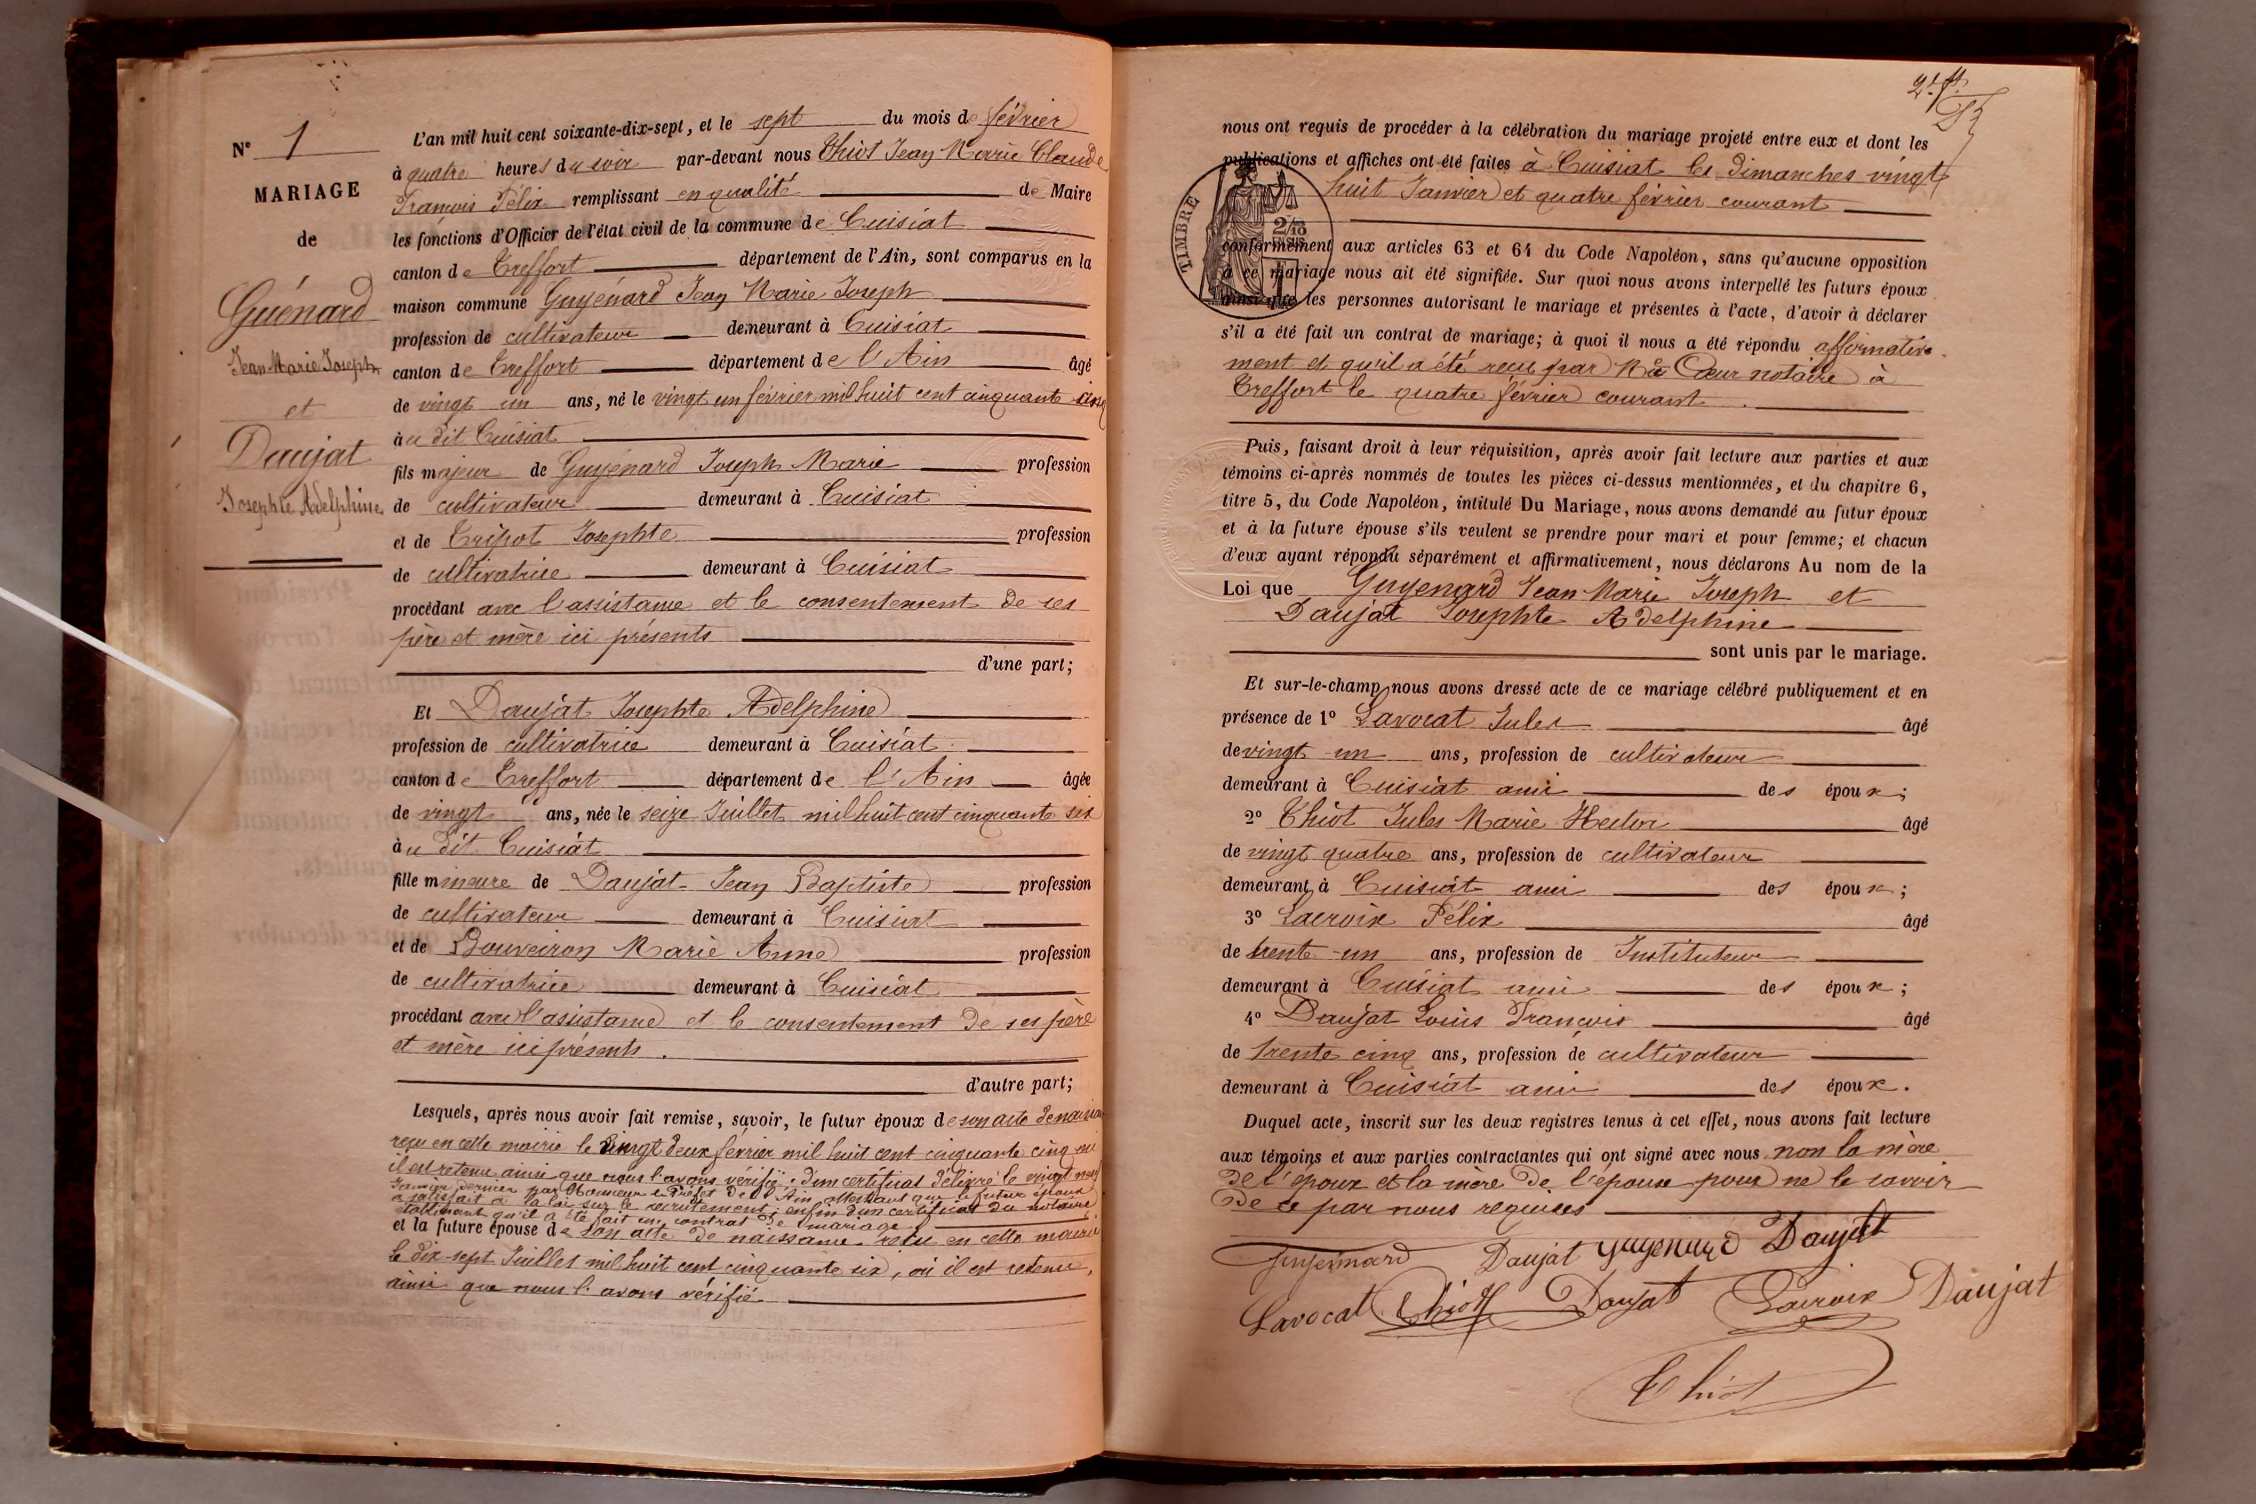 N° 1
MARIAGE
de
Guénard
Jean Marie Joseph
et
Daujat
Josephte Adelphine
L'an mil huit cent soixante-dix-sept, et le sept du mois de février
à quatre heures du soir par-devant nous Thiot Jean Marie Claude
François Félix remplissant en qualité de Maire
les fonctions d'Officier de l'état civil de la commune de Cuisiat
canton de Treffort département de l'Ain, sont comparus en la
maison commune Guyénard Jean Marie Joseph
profession de cultivateur demeurant à Cuisiat
canton de Treffort département de l'Ain âgé
de vingt un ans, né le vingt un février mil huit cent cinquante cinq
au dit Cuisiat
fils majeur de Guyénard Joseph Marie profession
de cultivateur demeurant à Cuisiat
et de Tripot Josephte profession
de cultivatrice demeurant à Cuisiat
procédant avec l'assistance et le consentement de ses
père et mère ici présents
d'une part;
Et Daujat Josephte Adelphine
profession de cultivatrice demeurant à Cuisiat
canton de Treffort département de l'Ain âgée
de vingt ans, née le seize Juillet mil huit cent cinquante six
au dit Cuisiat
fille mineure de Daujat Jean Baptiste profession
de cultivateur demeurant à Cuisiat
et de Bouveiron Marie Anne profession
de cultivatrice demeurant à Cuisiat
procédant avec l'assistance et le consentement de ses père
et mère ici présents.
d'autre part;
Lesquels, après nous avoir fait remise, savoir, le futur époux de son acte de naissance
reçu en cette mairie le vingt deux février mil huit cent cinquante cinq où
il est retenu ainsi que nous l'avons vérifié; d'un certificat délivré le vingt neuf
Janvier dernier par Monsieur le Préfet de l'Ain attestant que le futur époux
a satisfait à la loi sur le recrutement; enfin d'un certificat du notaire
établissant qu'il a été fait un contrat de mariage
et la future épouse de son acte de naissance reçu en cette mairie
le dix-sept Juillet mil huit cent cinquante six, où il est retenu,
ainsi que nous l'avons vérifié
2
nous ont requis de procéder à la célébration du mariage projeté entre eux et dont les
publications et affiches ont été faites à Cuisiat les dimanches vingt
huit Janvier et quatre février courant
TIMBRE
2/10
EN SUS
conformément aux articles 63 et 64 du Code Napoléon, sans qu'aucune opposition
à ce mariage nous ait été signifiée. Sur quoi nous avons interpellé les futurs époux
ainsi que les personnes autorisant le mariage et présentes à l'acte, d'avoir à déclarer
s'il a été fait un contrat de mariage; à quoi il nous a été répondu affirmative-
ment et qu'il a été reçu par Me Cœur notaire à
Treffort le quatre février courant.
Puis, faisant droit à leur réquisition, après avoir fait lecture aux parties et aux
témoins ci-après nommés de toutes les pièces ci-dessus mentionnées, et du chapitre 6,
titre 5, du Code Napoléon, intitulé Du Mariage, nous avons demandé au futur époux
et à la future épouse s'ils veulent se prendre pour mari et pour femme; et chacun
d'eux ayant répondu séparément et affirmativement, nous déclarons Au nom de la
Loi que Guyenard Jean Marie Joseph et
Daujat Josephte Adelphine
sont unis par le mariage.
Et sur-le-champ nous avons dressé acte de ce mariage célébré publiquement et en
présence de 1° Lavocat Jules âgé
de vingt-un ans, profession de cultivateur
demeurant à Cuisiat ami des époux;
2° Thiot Jules Marie Hector âgé
de vingt quatre ans, profession de cultivateur
demeurant à Cuisiat ami des époux;
3° Lacroix Félix âgé
de trente-un ans, profession de Instituteur
demeurant à Cuisiat ami des époux;
4° Daujat Louis François âgé
de trente cinq ans, profession de cultivateur
demeurant à Cuisiat ami des époux.
Duquel acte, inscrit sur les deux registres tenus à cet effet, nous avons fait lecture
aux témoins et aux parties contractantes qui ont signé avec nous non la mère
de l'époux et la mère de l'épouse pour ne le savoir
de ce par nous requises
Guyénard Daujat Guyenard Daujat
Lavocat Thiot Daujat Lacroix Daujat
Thiot